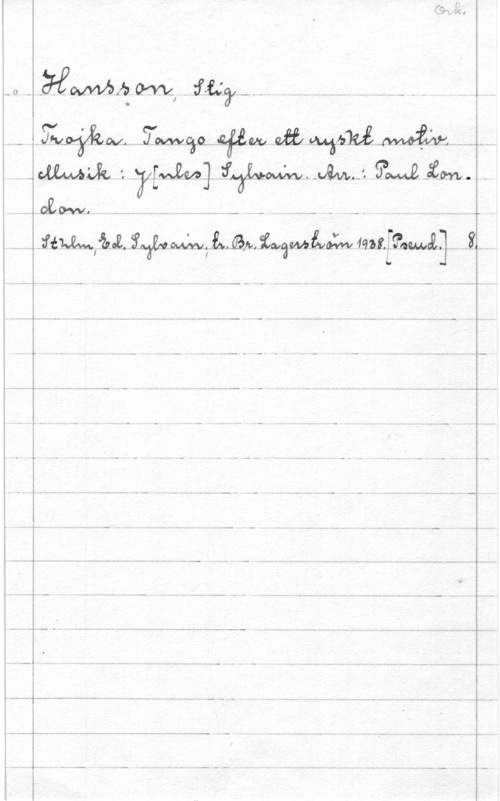 Ork.
Hansson, Stig
Trojka. Tango efter ett ryskt motiv.
Musik : J[ules] Sylvain. Arr. : Paul Lon-
don.
Sthlm, Ed. Sylvain, tr. Br. Lagerström 1938. [Pseud.] 8.